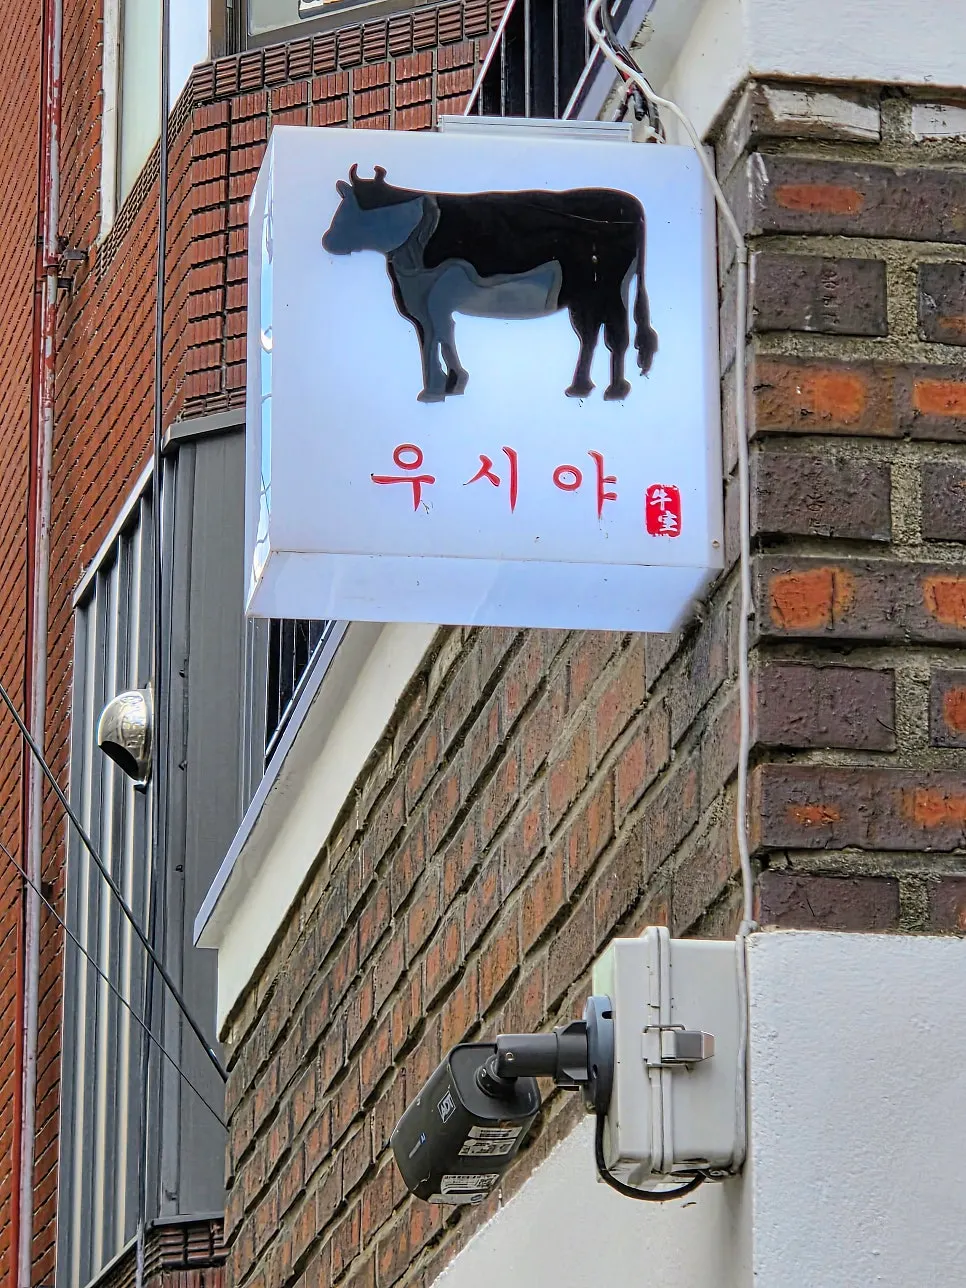 우시야
牛室
ADT